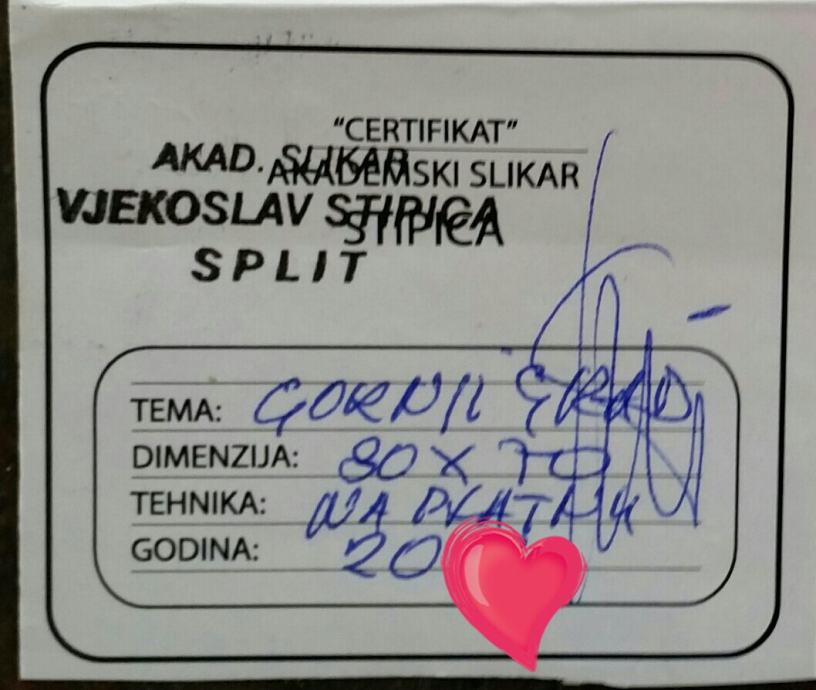 "CERTIFIKAT"
AKADEMSKI SLIKAR
STIPICA
AKAD. SLIKAR
VJEKOSLAV STIPICA
SPLIT
TEMA: GORNJI GRAD
DIMENZIJA: 80 X 70
TEHNIKA: NA PLATNU
GODINA: 20